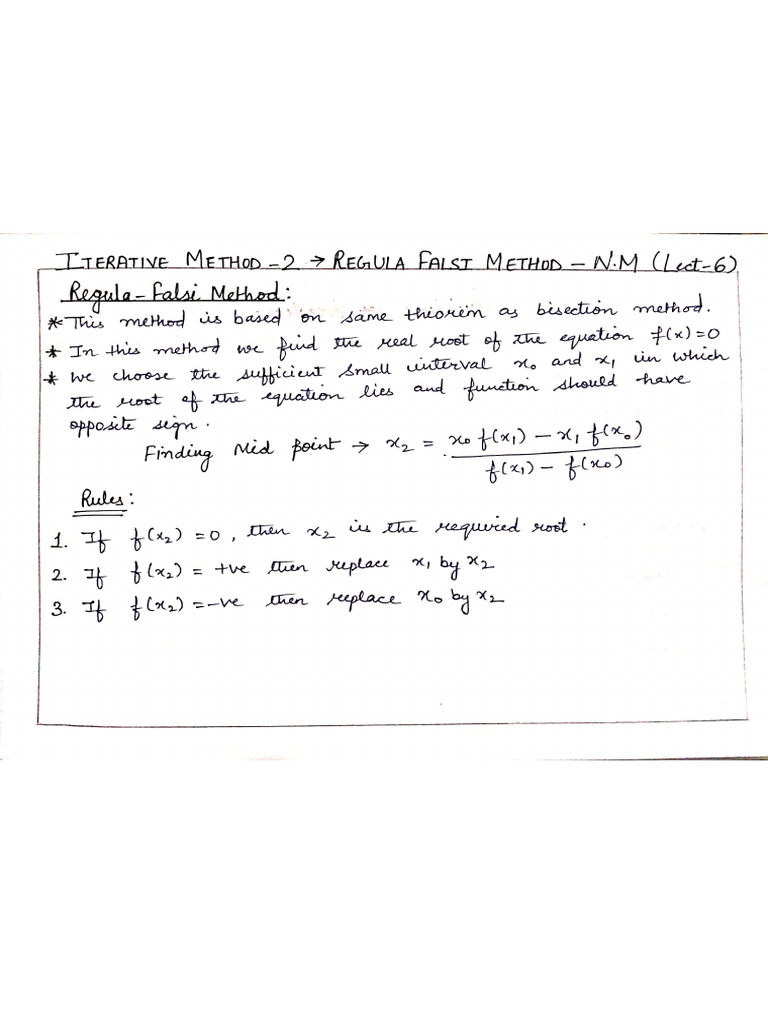 ITERATIVE METHOD - 2 → REGULA FALSI METHOD - N.M (Lect-6)
Regula - Falsi Method:
* This method is based on same theorien as bisection method.
* In this method we find the real root of the equation f(x)=0
* we choose the sufficient small interval x₀ and x₁ in which
the root of the equation lies and function should have
opposite sign.
Finding Mid point → x₂ = (x₀ f(x₁) - x₁ f(x₀)) / (f(x₁) - f(x₀))
Rules:
1. If f(x₂) = 0, then x₂ is the required root.
2. If f(x₂) = +ve then replace x₁ by x₂
3. If f(x₂) = -ve then replace x₀ by x₂